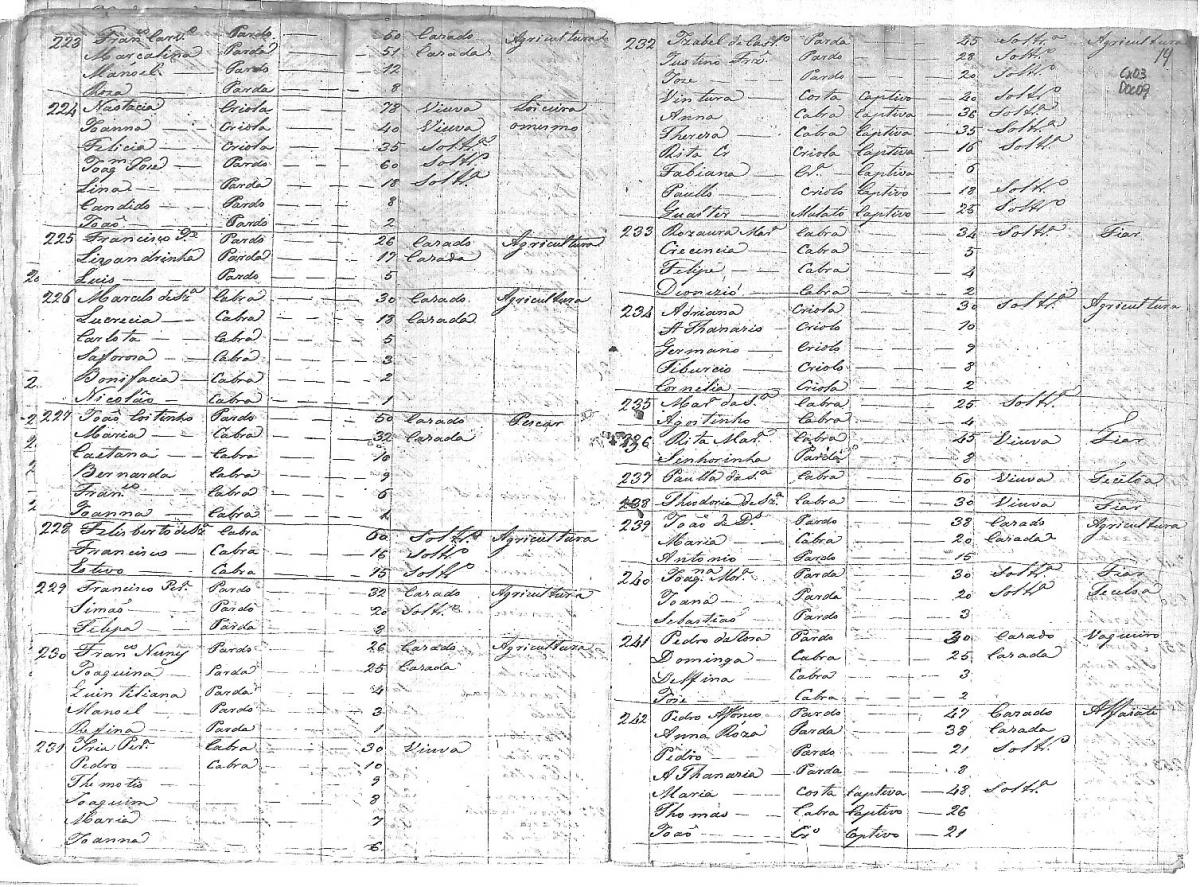 223 Fran.co Carv.o Pardo 60 Cazado Agricultura
Marcalina Parda 51 Cazada
Manoel Pardo 12
Roza Parda 8
224 Nastacia Criola 78 Viuva
Joanna Criola 40 Viuva omesmo
Felicia Criola 35 Soltr.a
Joaq.m Jozé Pardo 60 Soltr.o
Lina Parda 18 Soltr.a
Candido Pardo 8
João Pardo 2
225 Francisco Pardo 26 Cazado Agricultura
Lixandrinha Parda 17 Cazada
2. Luis Pardo 5
226 Marculo de Sz.a Cabra 30 Cazado Agricultura
Lucrecia Cabra 13 Cazada
Carlota Cabra 5
Cabra 3
2. Bonifacia Cabra 2
Nicoláo Cabra 1
2 227 João Coitinho Pardo 50 Cazado Pescar
2. Maria Cabra 32 Cazada
Caetana Cabra 10
2 Bernarda Cabra 9
Fran.co Cabra 6
Joanna Cabra
228 Felis berto de Sz.a Cabra 60 Soltr.o Agricultura
Francisco Cabra 16 Soltr.o
Estevo Cabra 15 Soltr.o
229 Francisco Per.a Pardo 32 Cazado Agricultura
Simaõ Pardo 20 Soltr.o
Felipa Parda 8
230 Fran.co Nunes Pardo 26 Cazado Agricultura
Joaquina Parda 25 Cazada
Quintiliana Parda 4
Manoel Pardo 3
Rofina Parda 1
231 Iria Per.a Cabra 30 Viuva
Pedro Cabra 10
Themotio 9
Joaquim 8
Maria 7
Joanna 6
14
Cx03
Doc09
232 Izabel de Cast.o Parda 45 Soltr.a Agricultura
Justino Pardo 28 Soltr.o
Joze Pardo 20 Soltr.o
Vintura Costa Captivo 40 Soltr.o
Anna Cabra Captiva 36 Soltr.a
Thereza Cabra Captiva 35 Soltr.a
Rita Cr Criola Captiva 16 Soltr.a
Fabiana Cr.a Captiva 6
Paullo Criolo Captivo 18 Soltr.o
Mulato Captivo 25 Soltr.o
233 Rozaura Mar.a Cabra 34 Soltr.a Fiar
Crecencia Cabra 5
Felipe Cabra 4
Dionizió Cabra 2
234 Adriana Criola 30 Soltr.a Agricultura
A Thanazio Criolo 10
Germano Criolo 9
Tiburcio Criolo 8
Cornelia Criola 2
235 Mar.a da S.a Cabra 25 Soltr.a
Agostinho Cabra 4
236 Rita Mar.a Cabra 45 Viuva Fiar
Senhorinha Parda 9
237 Paulla da S.a Cabra 60 Viuva Teceloa
238 Theodoria de Sz.a Cabra 30 Viuva Fiar
239 João de D.s Pardo 38 Cazado Agricultura
Maria Cabra 20 Cazada
Antonio Pardo 15
240 Joaq.na Mar.a Parda 30 Soltr.a Fiar
Joana Parda 20 Soltr.a Tecelôa
Sebastiaõ Pardo 3
241 Pedro da Cora Pardo 30 Cazado Vaqueiro
Dominga Cabra 25 Cazada
Delfina Cabra 3
Joze Cabra 2
242 Pedro Affonço Pardo 47 Cazado Alfaiate
Anna Roza Parda 38 Cazada
Pedro Pardo 21 Soltr.o
A Thanazia Parda 8
Maria Costa Captiva 48 Soltr.a
Thomas Cabra Captivo 26
João Cr.o Captivo 21